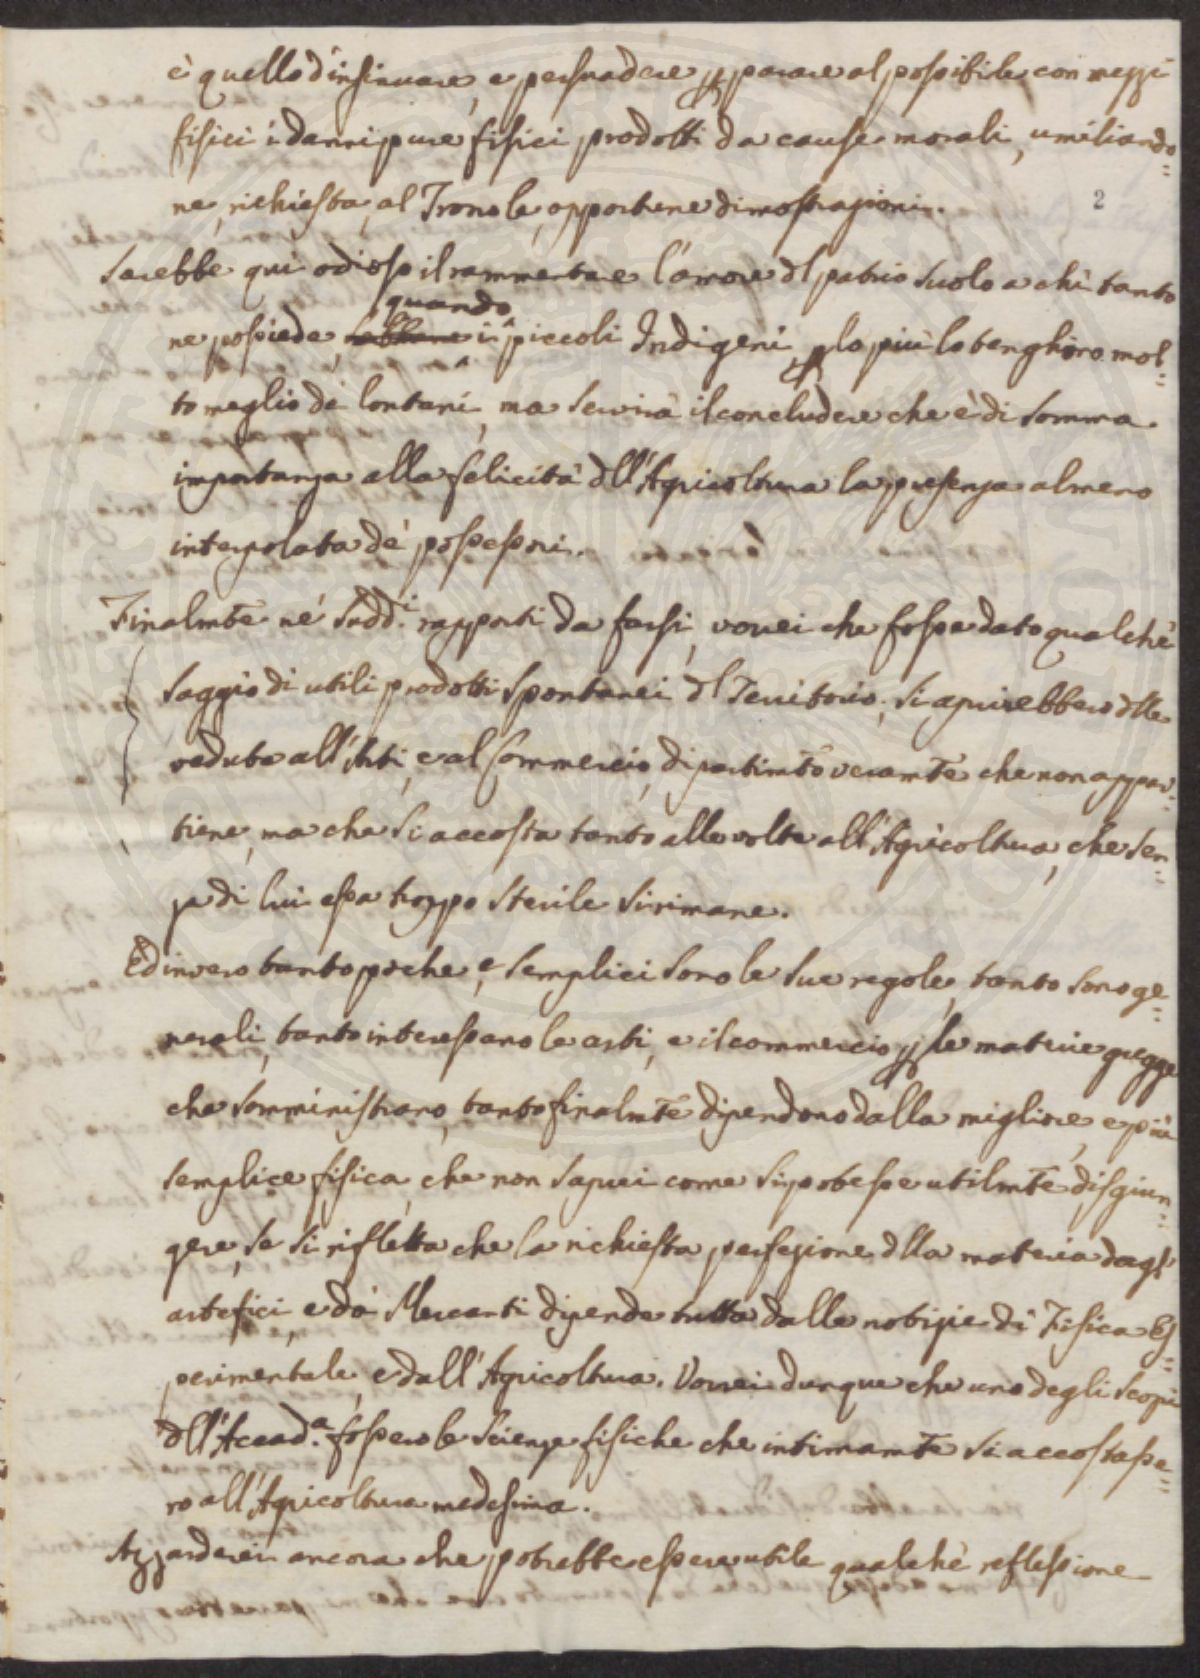 è quello d'insinuare, e persuadere p parare al possibile con mezzi
fisici i danni pure fisici prodotti da cause morali, umiliando=
ne, richiesta, al Trono le opportune dimostrazioni.
2
Sarebbe qui odioso il rammentare l'amore dl patrio suolo a chi tanto
quando
ne possiede, sebbene i piccoli Indigeni p lo più lo tenghino mol=
to meglio de lontani, ma servirà il concludere che è di somma
importanza alla felicità dll'Agricoltura la presenza almeno
interpolata de' possessori.
Finalmte ne' Sudd.i rapporti da farsi, vorrei che fosse dato qualche
saggio di utili prodotti spontanei dl Territorio; si aprirebbero dlle
vedute all'Arti, e al Commercio, dipartimto veramte che non appar=
tiene, ma che si accosta tanto alle volte all'Agricoltura, che sen=
za di lui essa troppo sterile si rimane.
Ed invero tanto poche, e semplici sono le sue regole, tanto sono ge=
nerali, tanto interessano le arti, e il commercio p le materie gregge
che somministrano, tanto finalmte dipendono dalla migliore, e più
semplice fisica, che non saprei come si potesse utilmte disgiun=
gere, se si rifletta che la richiesta perfezione dlla materia dagl'
artefici, e da' Mercanti dipende tutta dalle notizie di Fisica Es=
perimentale, e dall'Agricoltura. Vorrei dunque che uno degli scopi
dll'Accad.a fossero le scienze fisiche che intimamte si accostasse=
ro all'Agricoltura medesima.
Azzarderei ancora che potrebbe essere utile qualche reflessione